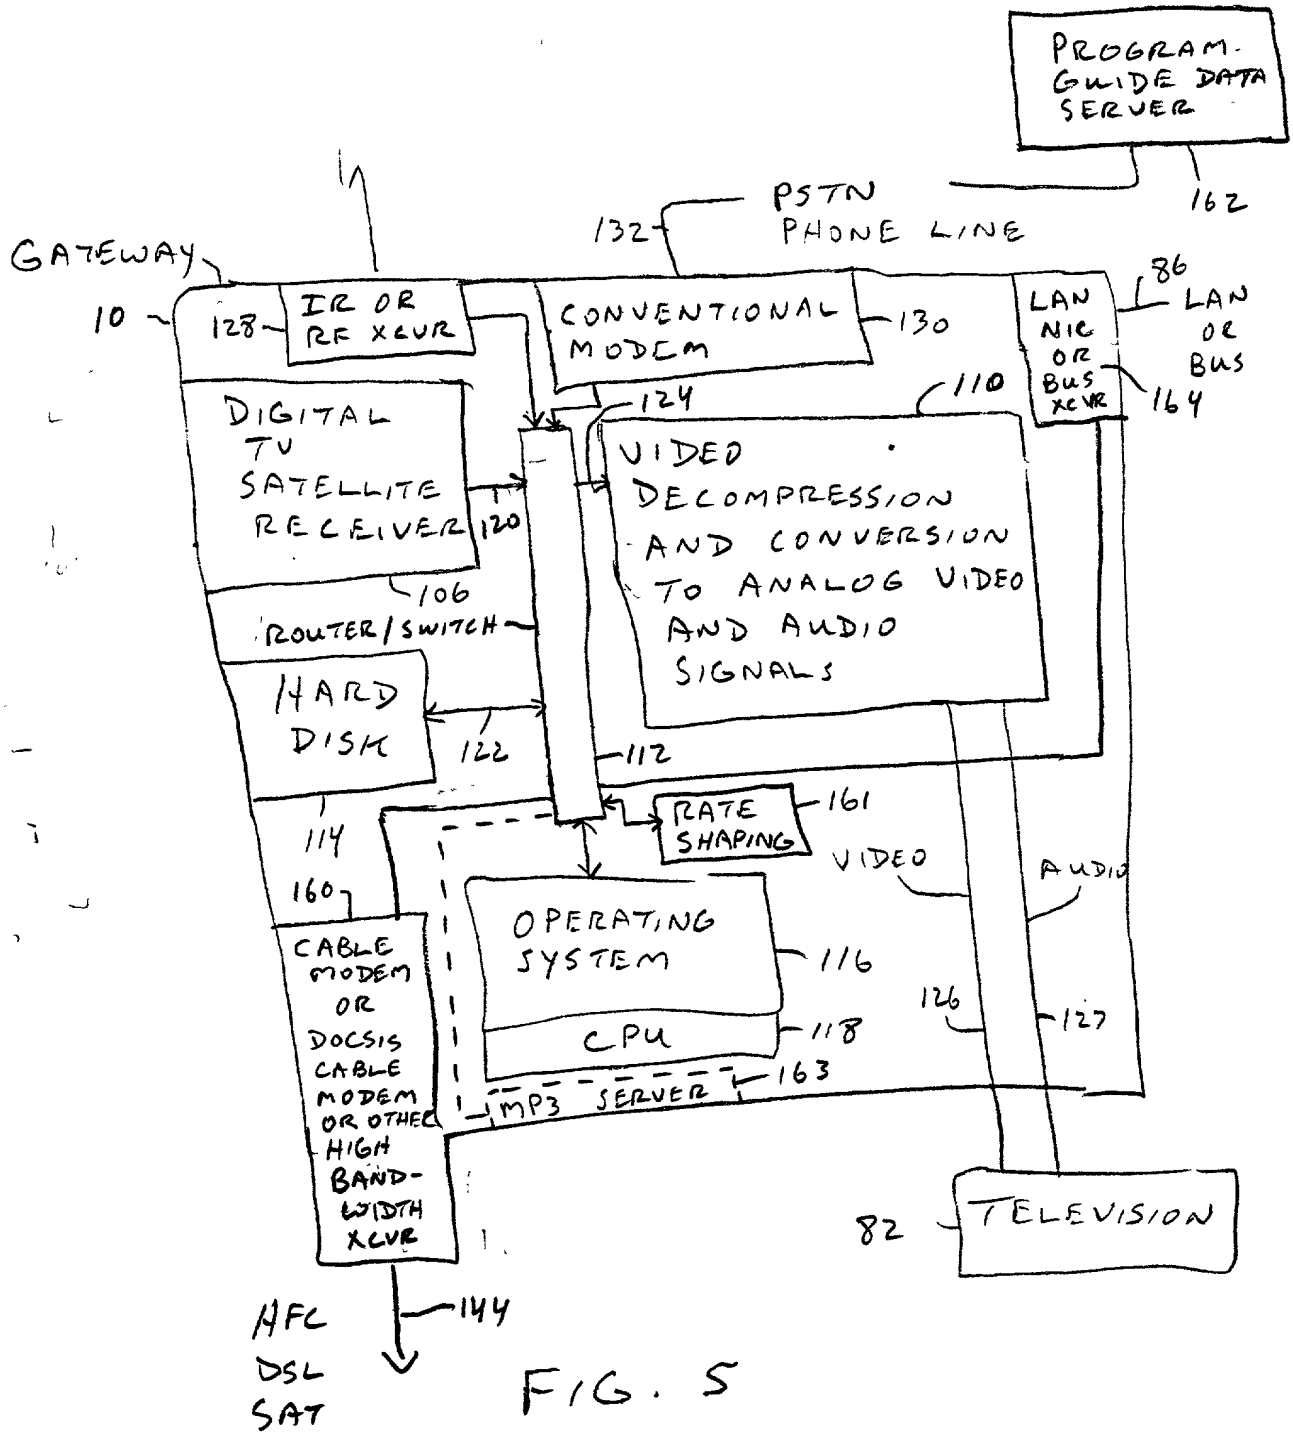 PROGRAM-
GUIDE DATA
SERVER
162
PSTN
PHONE LINE
132
GATEWAY
10
128
IR OR
RF XCVR
CONVENTIONAL
MODEM
130
LAN
NIC
OR
BUS
XCVR
164
86
LAN
OR
BUS
124
110
DIGITAL
TV
SATELLITE
RECEIVER
120
106
VIDEO
DECOMPRESSION
AND CONVERSION
TO ANALOG VIDEO
AND AUDIO
SIGNALS
ROUTER/SWITCH
HARD
DISK
122
112
114
RATE
SHAPING
161
VIDEO
AUDIO
160
CABLE
MODEM
OR
DOCSIS
CABLE
MODEM
OR OTHER
HIGH
BAND-
WIDTH
XCVR
OPERATING
SYSTEM
116
CPU
118
MP3 SERVER
163
126
127
82
TELEVISION
HFC
DSL
SAT
144
FIG. 5